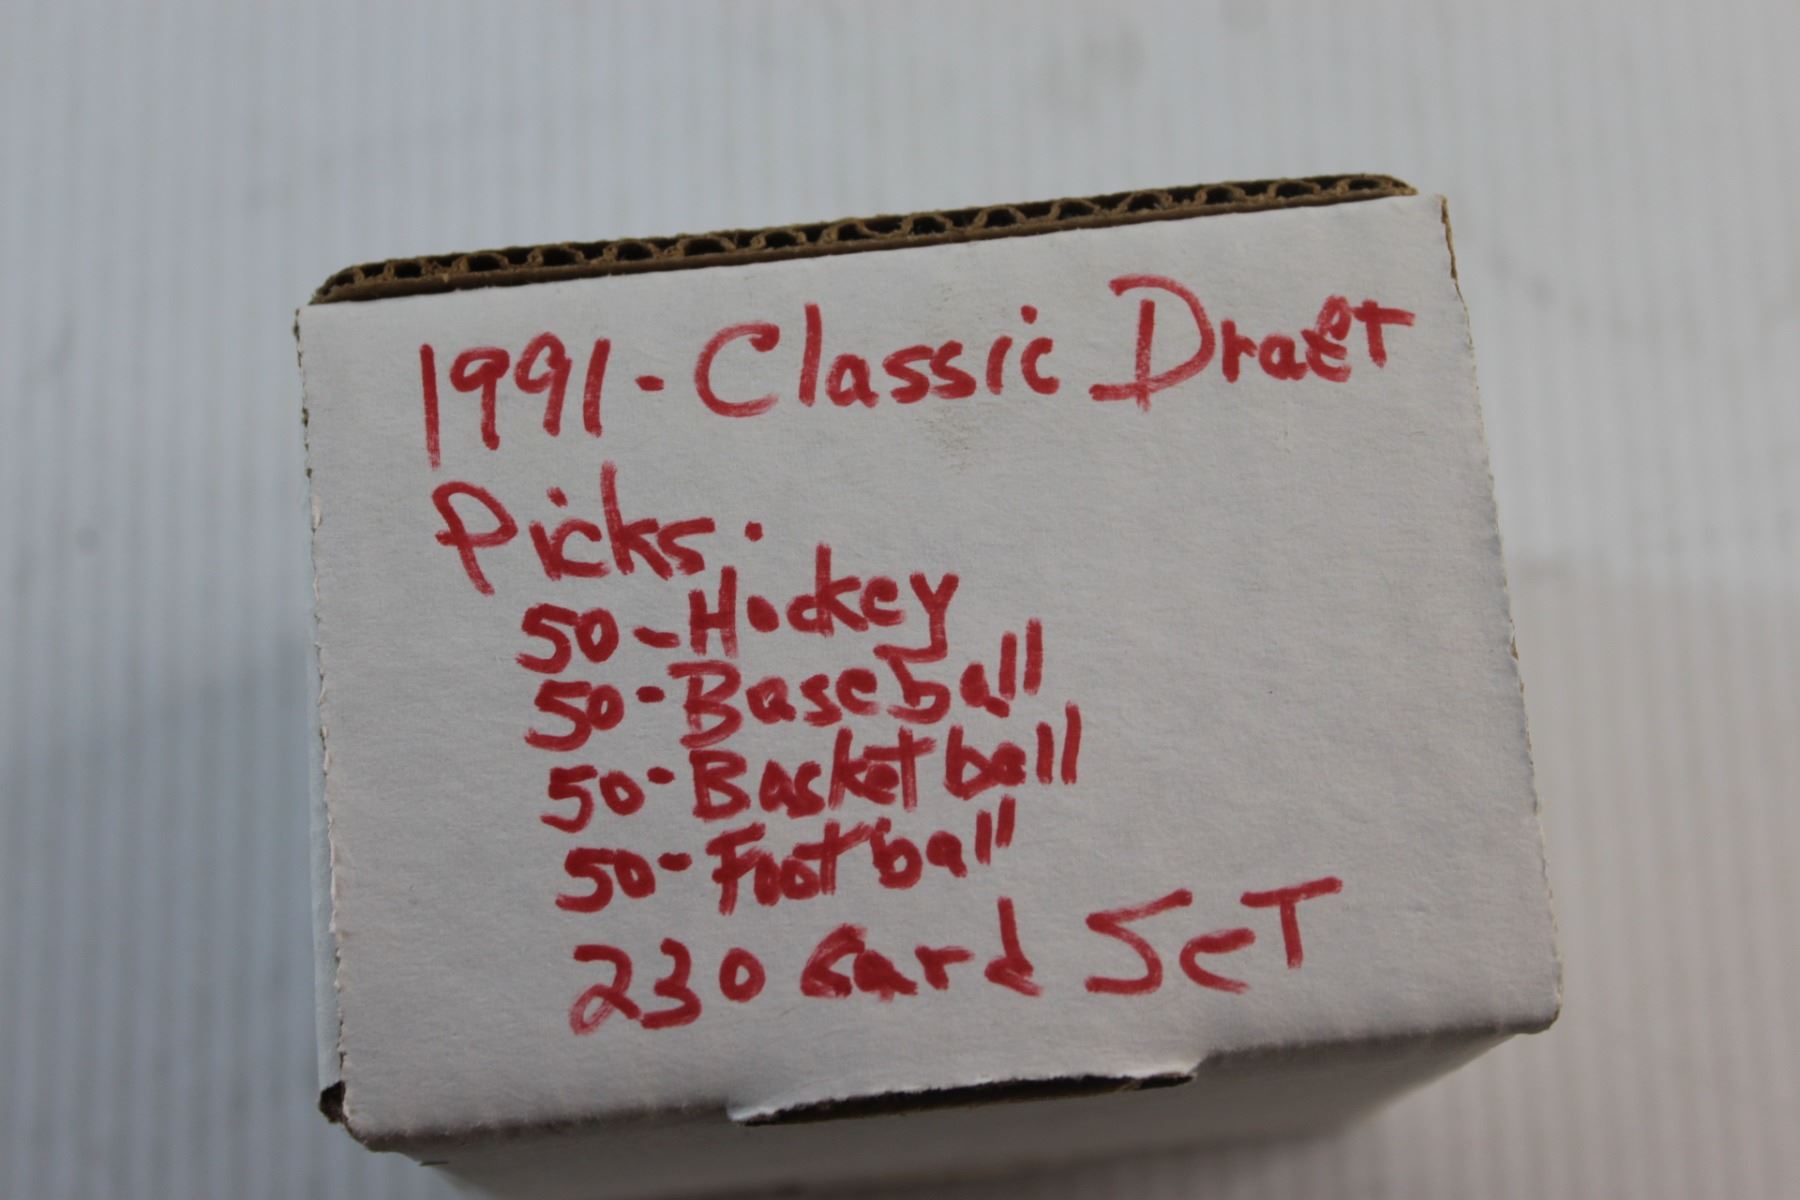 1991 - Classic Draft
Picks.
50 - Hockey
50 - Baseball
50 - Basketball
50 - Football
230 Card Set